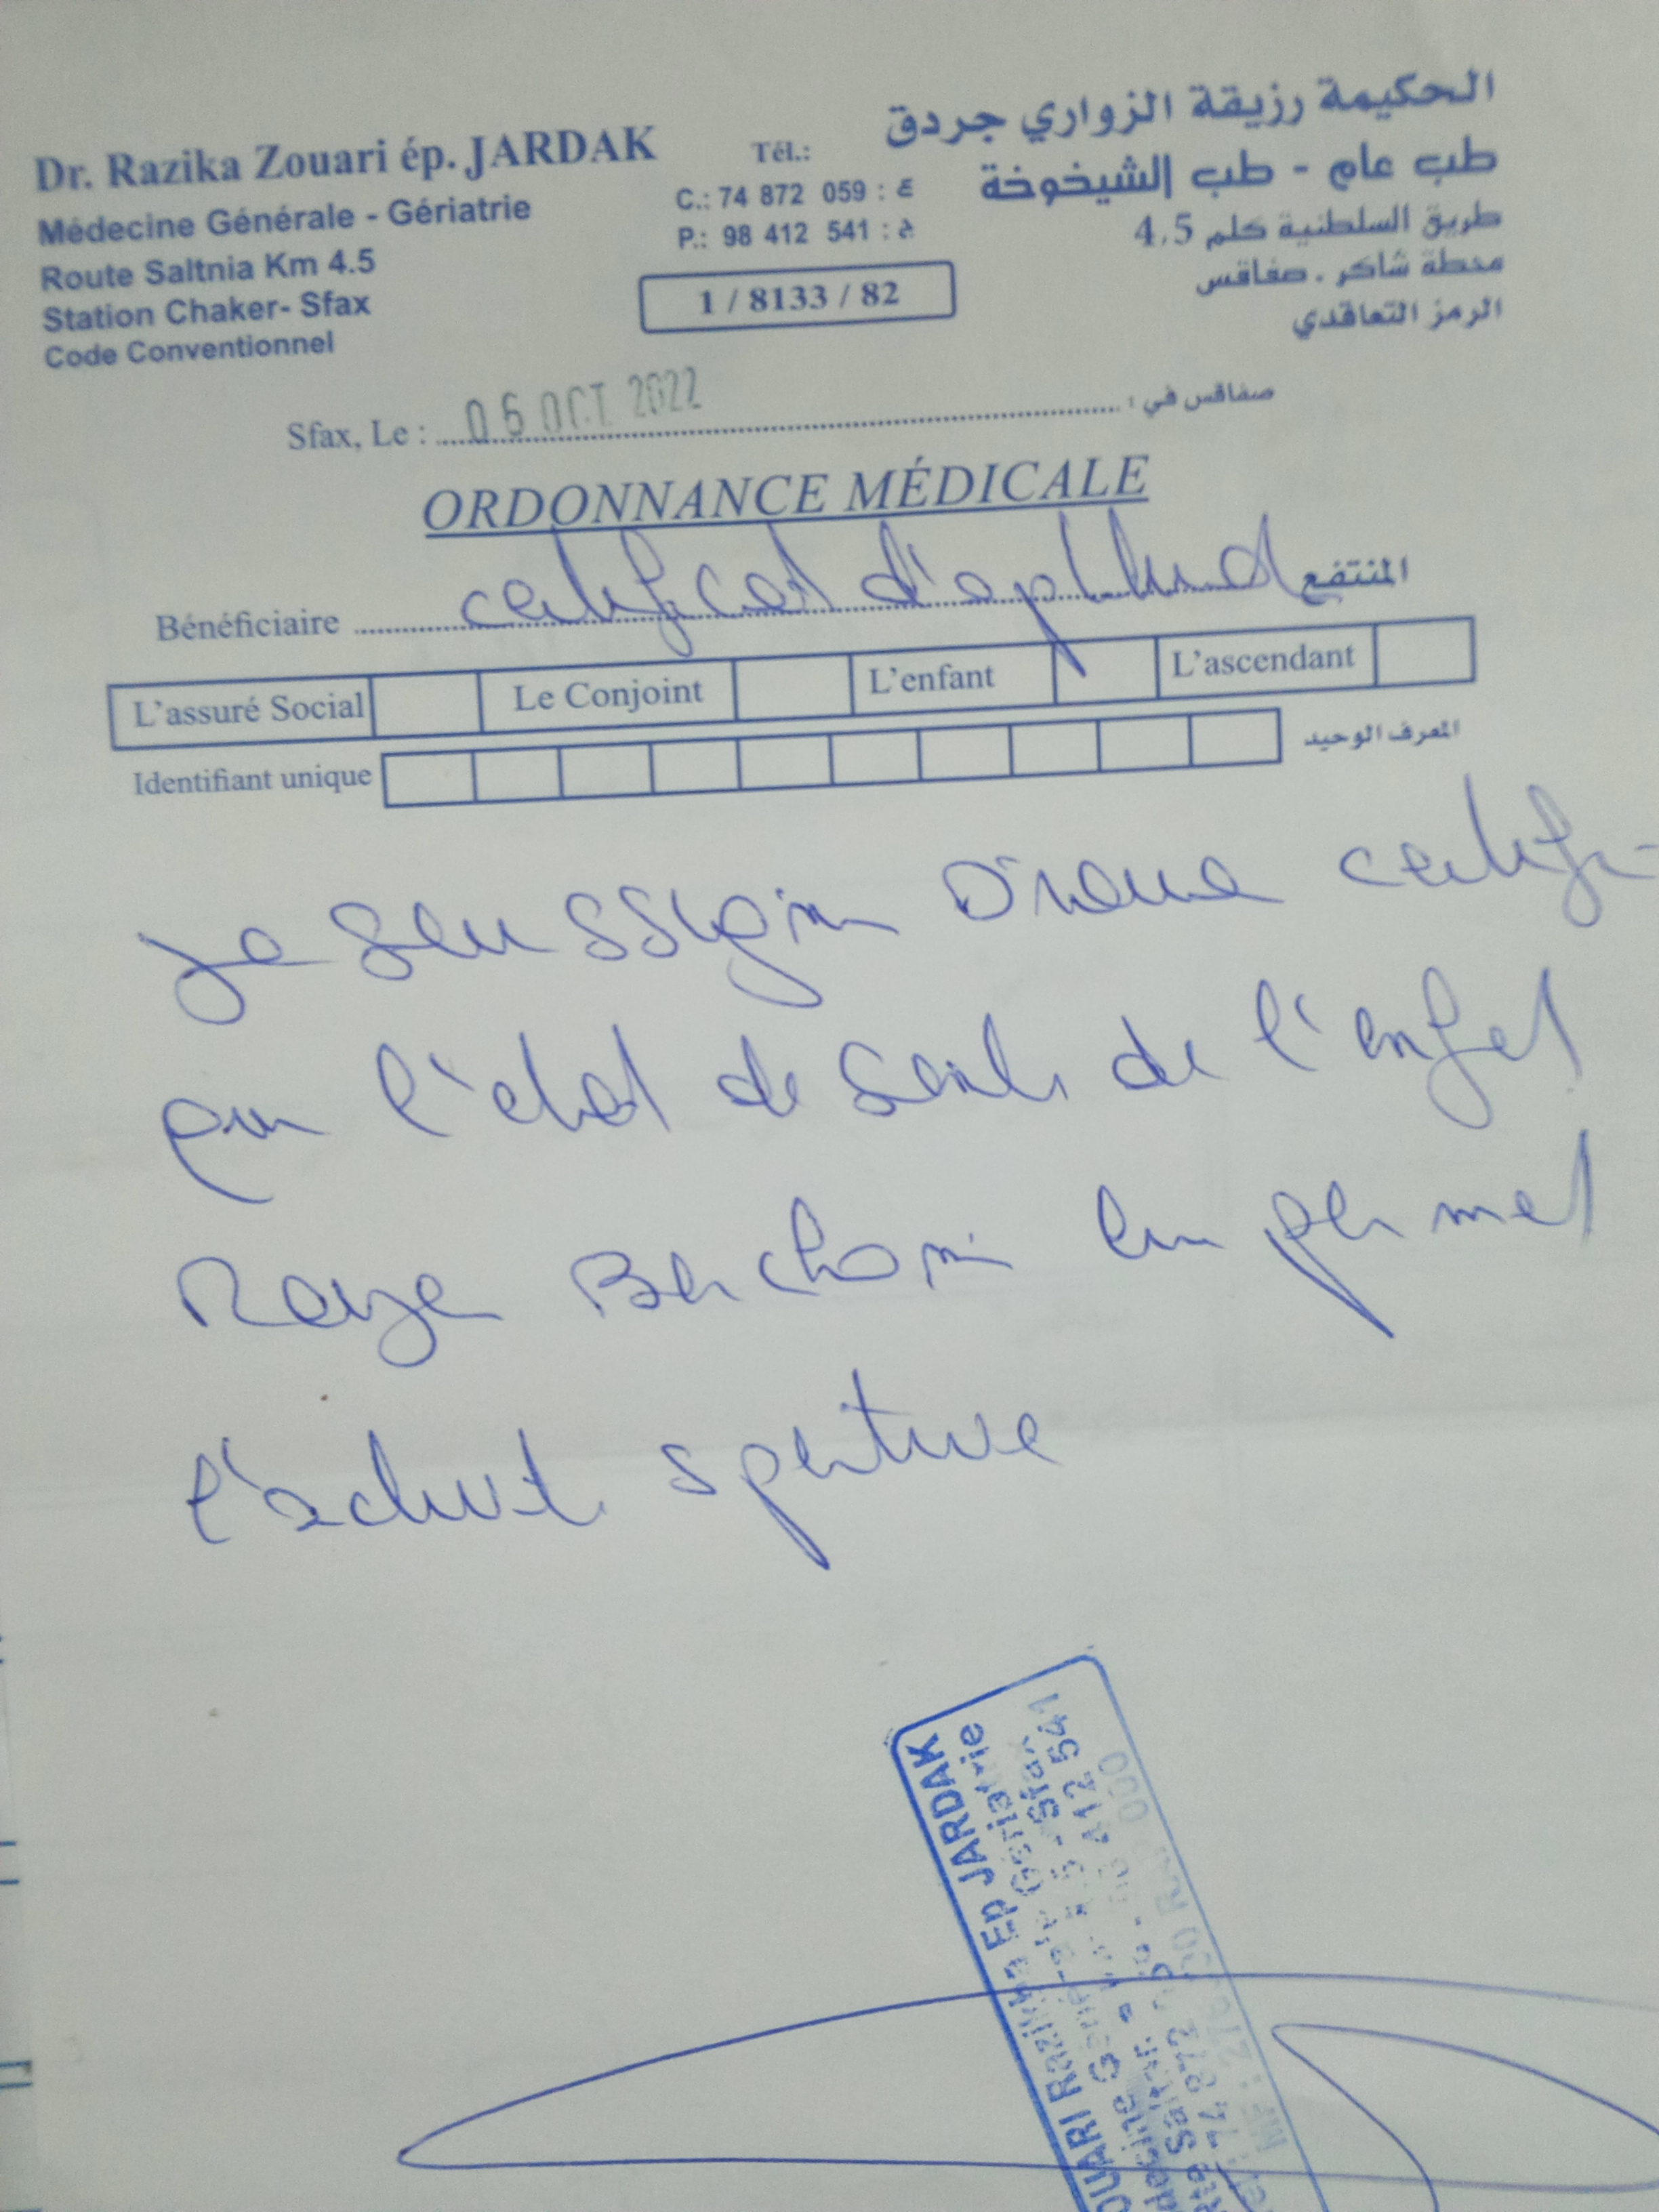 Dr. Razika Zouari ép. JARDAK
Médecine Générale - Gériatrie
Route Saltnia Km 4.5
Station Chaker- Sfax
Code Conventionnel
Tél.:
C.: 74 872 059 : ع
P.: 98 412 541 : ج
1 / 8133 / 82
الحكيمة رزيقة الزواري جردق
طب عام - طب الشيخوخة
طريق السلطنية كلم 4,5
محطة شاكر . صفاقس
الرمز التعاقدي
Sfax, Le : 06 OCT 2022 صفاقس في :
ORDONNANCE MÉDICALE
Bénéficiaire certificat d'aptitud المنتفع
L'assuré Social Le Conjoint L'enfant L'ascendant
Identifiant unique المعرف الوحيد
je soussigné certifi-
que l'état de santé de l'enfat
lui permet
l'activité sportive
ZOUARI Razika Ep JARDAK
Médecine Générale Gériatrie
Sfax
412 541